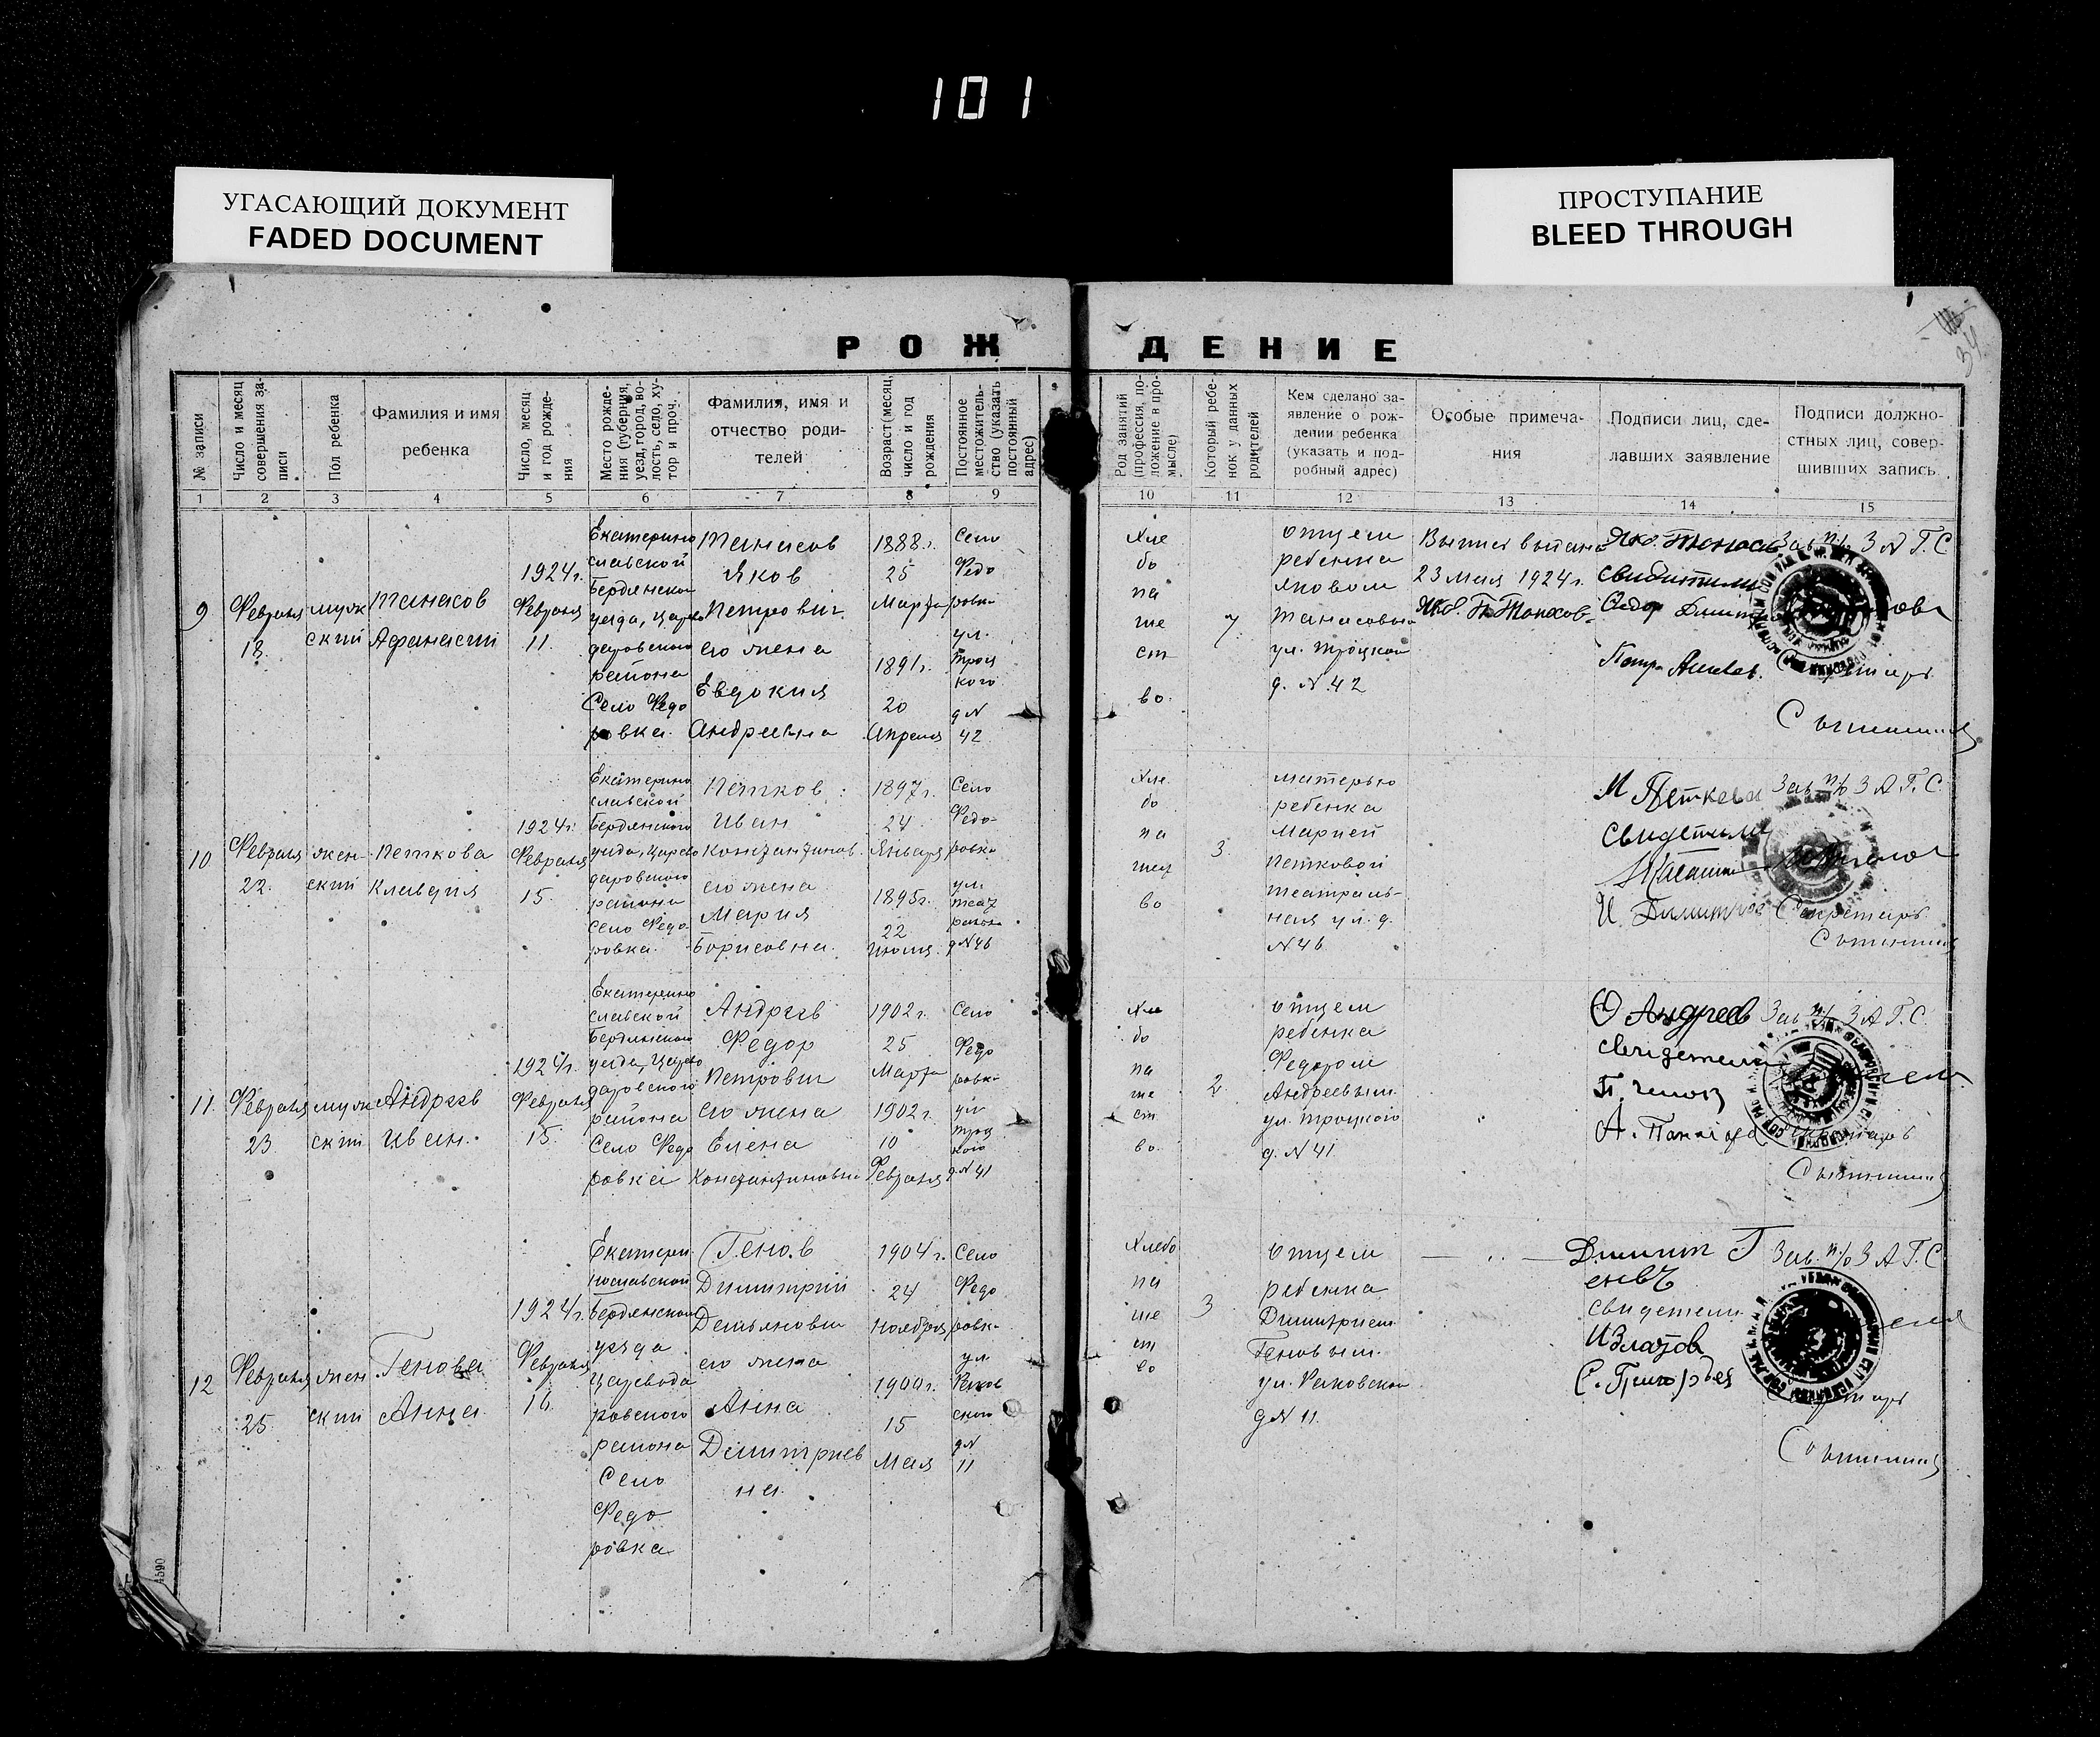 101
УГАСАЮЩИЙ ДОКУМЕНТ
FADED DOCUMENT
ПРОСТУПАНИЕ
BLEED THROUGH
34
РОЖДЕНИЕ
№ записи
Число и месяц совершения записи
Пол ребенка
Фамилия и имя ребенка
Число, месяц и год рождения
Место рождения (губерния, уезд, город, волость, село, хутор и проч.
Фамилия, имя и отчество родителей
Возраст (месяц, число и год рождения
Постоянное местожительство (указать постоянный адрес)
Род занятий (профессия, положение в промысле)
Который ребенок у данных родителей
Кем сделано заявление о рождении ребенка (указать и подробный адрес)
Особые примечания
Подписи лиц, сделавших заявление
Подписи должностных лиц, совершивших запись.
1 2 3 4 5 6 7 8 9 10 11 12 13 14 15
9
Февраля
18.
мужский
Танасов
Афанасий
1924 г.
Февраля
11.
Екатерино
славской
Бердянского
уезда, Царево
даровского
района
Село Федо
ровка.
Танасов
Яков
Петрович
его жена
Евдокия
Андреевна
1888 г.
25
Марта
1891 г.
20
Апреля
Село
Федо
ровка
ул.
Троц
кого
д N
42
Хле
бо
па
ше
ст
во.
7.
отцем
ребенка
Яковом
Танасовым
ул. Троцкого
д. N 42
Выпись выдана
23 Мая 1924 г.
Яко. Танасов
свидители
Федор
Зав. п/о ЗАГС
10
Февраля
22.
женский
Петкова
Клавдия
1924 г.
Февраля
15.
Екатерино
славской
Бердянского
уезда, Царево
даровского
района
Село Федо
ровка.
Петков
Иван
Константинов.
его жена
Мария
Борисовна.
1897 г.
24
Января
1895 г.
22
Июля.
Село
Федо-
ровка
ул.
д N 46
Хле
бо
па
во
3.
матерью
ребенка
Марией
Петковой
театраль-
ная ул. д.
N 46.
М Петкова
Свидетили
И Димитров
Зав. п/о З А Г. С.
Секретарь
11.
Февраля
23
мужский
Андреев
Иван.
1924 г.
Февраля
15.
Екатерино
славской
Бердянского
уезда, Царево
даровского
района
Село Федо
ровка
Андреев
Федор
Петрович
его жена
Елена
Константиновна
1902 г.
25
Марта
1902 г.
10
Февраля
Село
Федо
ровка
ул
Троц
кого
д. N 41
Хле
бо
па
ше
ст
во.
2.
отцем
ребенка
Федором
Андреевым.
ул. Троцкого
д. N 41.
Ф Андреев
свидетели
Зав. п/о З А Г. С.
Секретарь
12
Февраля
25.
женский
Генова
Анна
1924 г.
Февраля
16.
Екатери
нославской
Бердянского
уезда
Царевода
ровского
района
Село
Федо
ровка
Генов
Димитрий
Демьянович
его жена
Анна
Димитриев
на.
1904 г.
24
Ноября
1900 г.
15
Мая
Село
Федо
ровка
ул.
Раков
ского
д N
11
Хлебо
па
ше
ст
во
3
отцем
ребенка
Димитрием
Геновым.
ул. Раковского
д N 11.
Димит Г
свидетели
И Златов
Зав. п/о З А Г. С.
4590